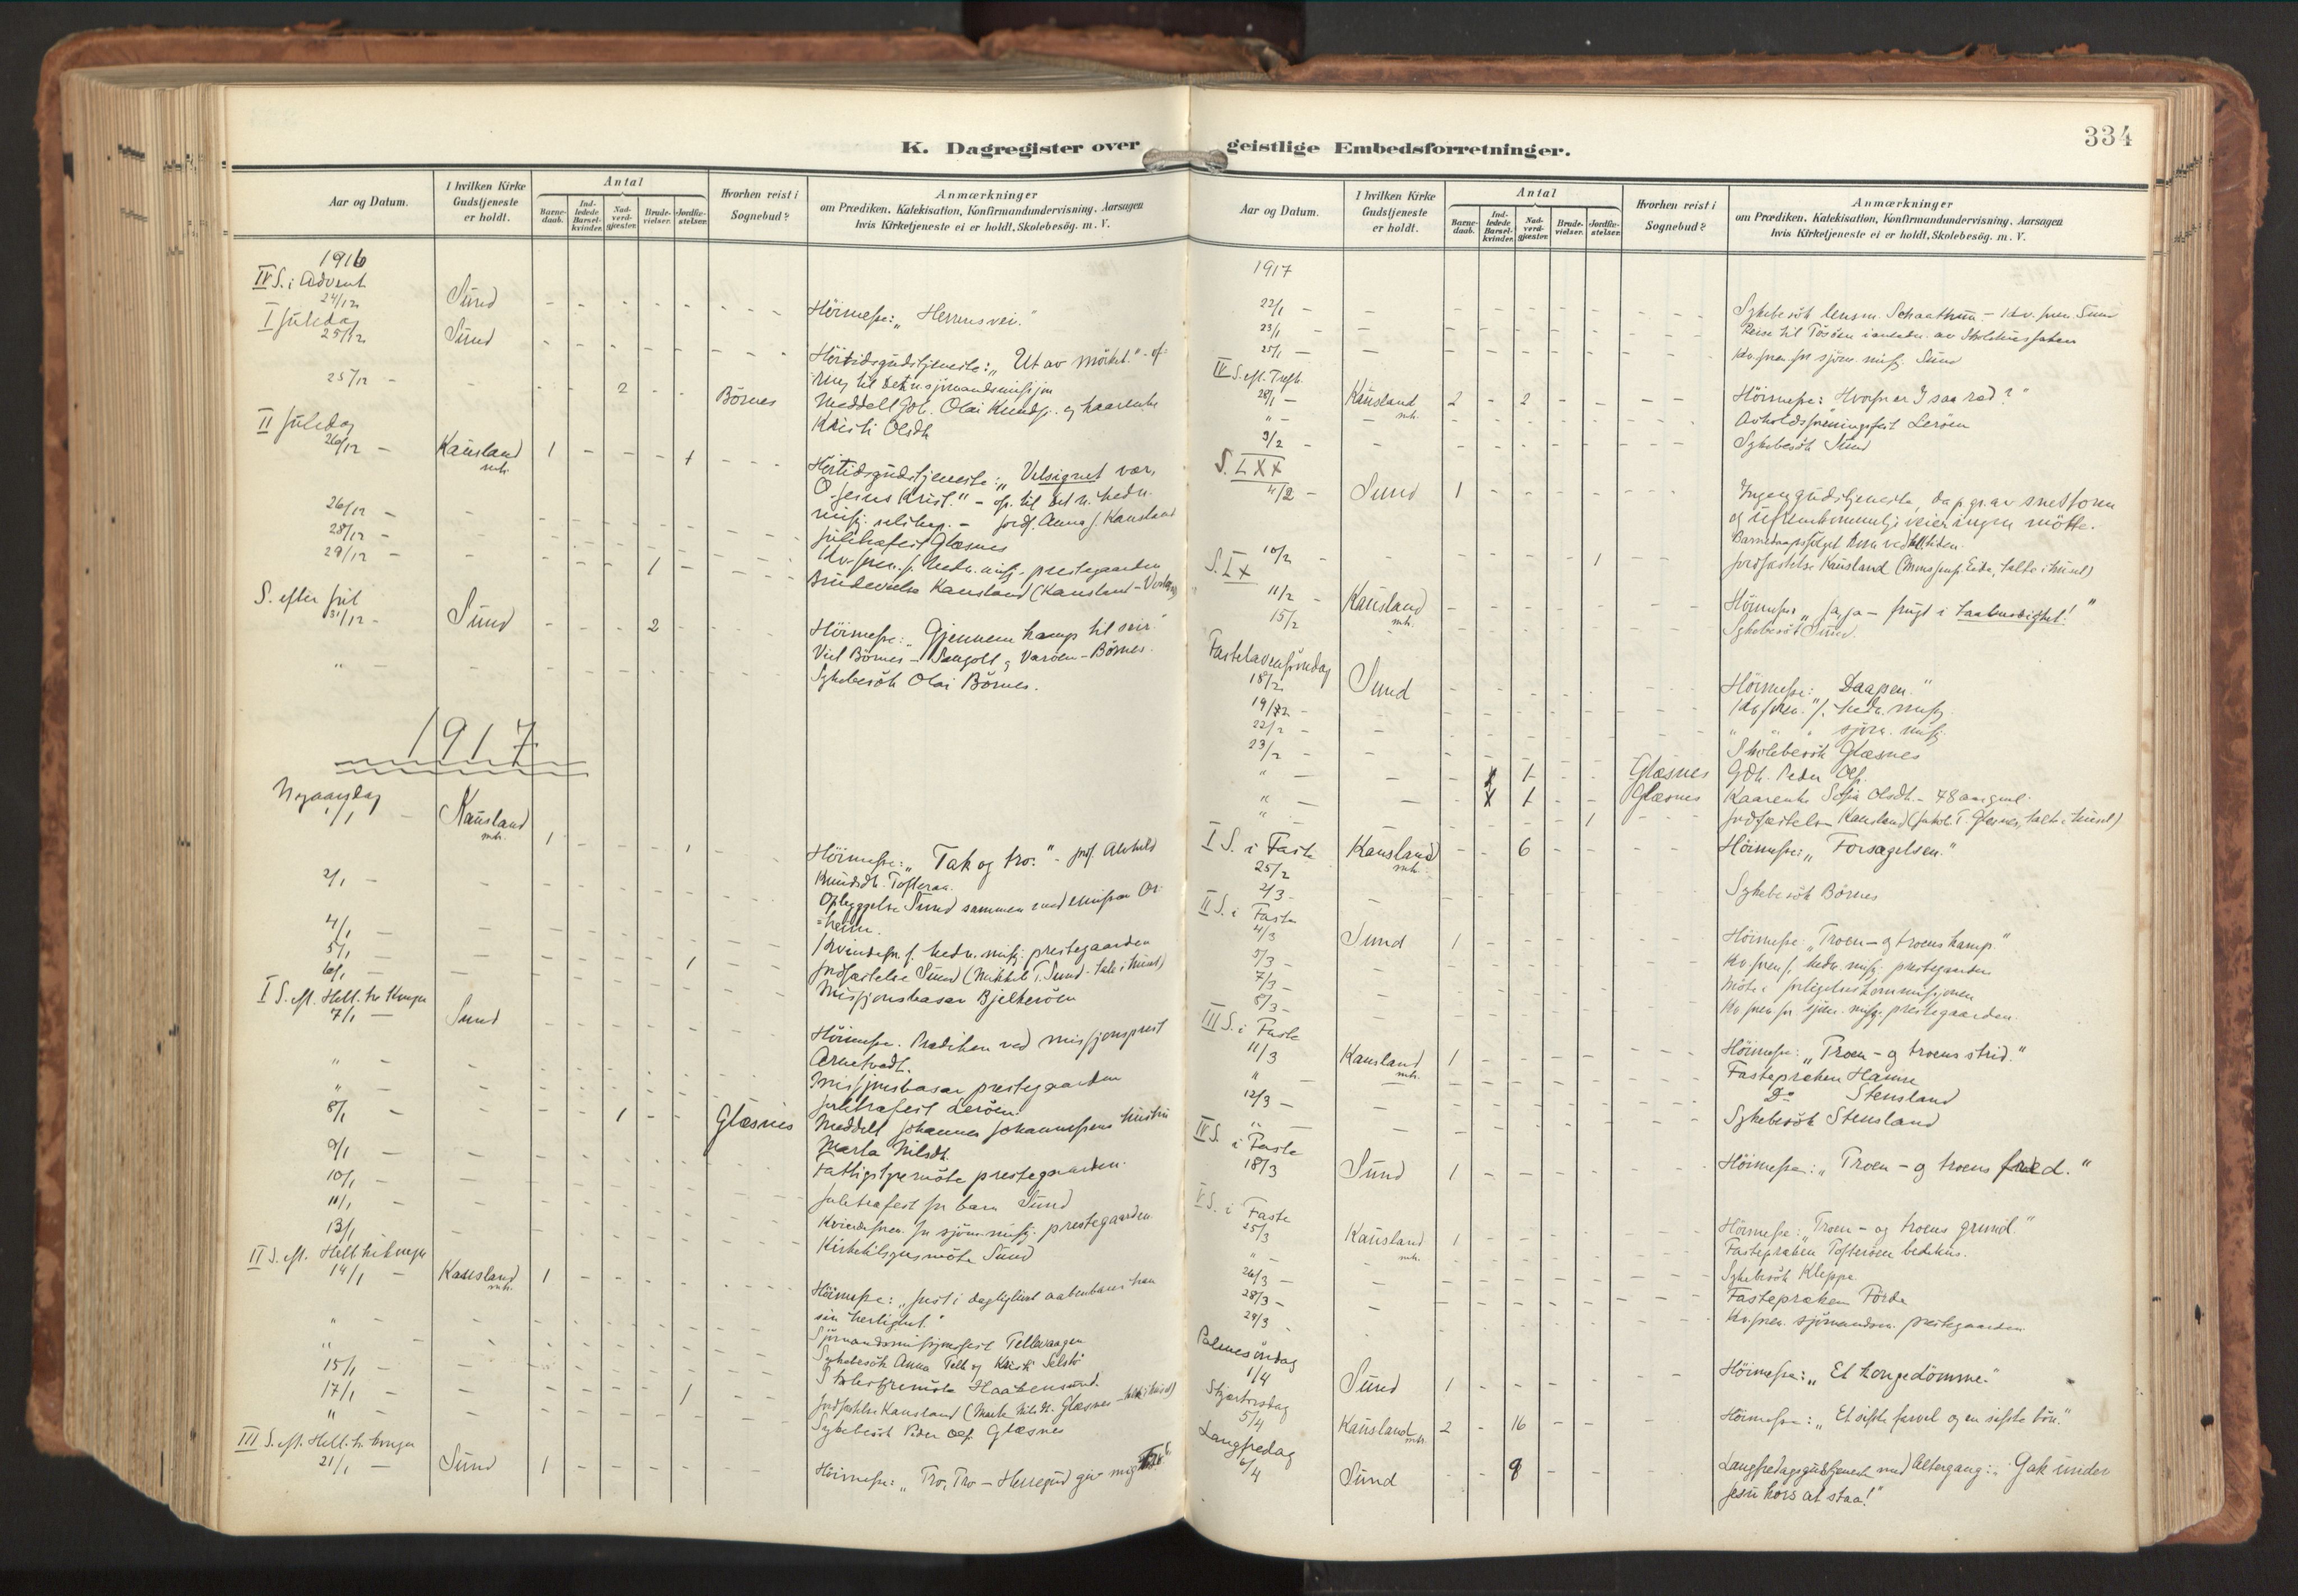 334
K. Dagregister over
Aar og Datum.
I hvilken Kirke Gudstjeneste er holdt.
Antal
Barne-daab.
Ind-ledede Barsel-kvinder.
Nad-verd-gjæster.
Brude-vielser.
Jordfæ-stelser.
Hvorhen reist i Sognebud?
Anmærkninger
om Prædiken, Katekisation, Konfirmandundervisning, Aarsagen
hvis Kirketjeneste ei er holdt, Skolebesög. m. V.
1916
IV S. i Advent
24/12 Sund - - - - - - Höimesse: „Herrens vei."
I Juledag
25/12 Sund - - - - - - Höitidsgudstjeneste: „Ut av mörket." - of-
25/12 - - - - 2 - - Börnes
Meddelt Joh. Olai Knuds. og kaarenke
Kristi Olsdt.
II Juledag
26/12 - Kausland mk. 1 - - - 1 - - - Höitidsgudstjeneste: „Velsignet vær,
O Jesus Krist." - of. til det n. hedn.
misj. selskap. - Jordf. Anna J. Kausland
26/12 - Juletræfest Glæsnes
28/12 - Kv.foren. f. hedn. misj. prestegaarden
29/12 - 1 Brudevielse Kausland
S. efter Jul
31/12 - Sund - - - 2 - Höimesse: „Gjennem kamp til seir."
Viet Börnes - Sangolt og Varöen - Börnes.
" - Sykebesök Olai Börnes.
1917
Nyaarsdag
1/1 - Kausland mk. 1 1 Höimesse: „Tak og tro." - jordf. Alvhild
Knudsdt. Tofteraa.
2/1 - Oplyggelse Sund sammen med
=heim.
4/1 - Kvindefor. f. hedn. misj. prestegaarden
5/1 - 1 Jordfæstelse Sund
6/1 - Missjonsbasar Bjelkeröen
I S. eft. Hell. tre Konger
7/1 - Sund Höimesse. Prædiken ved missjonsprest
Arnetvedt.
" Missjonsbasar prestegaarden
" Juletræfest Leröen
8/1 - 1 - - Glæsnes Meddelt Johannes Johannessens hustru
Marta Nilsdt.
9/1 - Fattigstyremöte prestegaarden.
10/1 - Juletræfest for barn Sund
11/1 - Kvindeforen. for sjöm. misj. prestegaarden
13/1 Kirketilsynsmöte Sund
II S. eft. Hell tre konger
14/1 - Kausland mk. 1 Höimesse: „Just i dagliglivet aabenbares han
sin herlighet."
" Sjömandsmissjonsfest Tellevaagen
" Sykebesök Anna Telle og Kristi Selstö
15/1 - Skolestyremöte Haakensund.
17/1 - 1 Jordfæstelse Kausland (Marta Nilsdt. Glæsnes - talt i huset)
" Sykebesök Peder Ols. Glæsnes
III S. eft. Hell. tr. konger
21/1 - Sund 1 Höimesse: „Tro, Tro - Herregud giv mig tro."
geistlige Embedsforretninger.
Aar og Datum.
I hvilken Kirke Gudstjeneste er holdt.
Antal
Barne-daab.
Ind-ledede Barsel-kvinder.
Nad-verd-gjæster.
Brude-vielser.
Jordfæ-stelser.
Hvorhen reist i Sognebud?
Anmærkninger
om Prædiken, Katekisation, Konfirmandundervisning, Aarsagen
hvis Kirketjeneste ei er holdt, Skolebesög. m. V.
1917
22/1 - Sykebesök lensm. Schaathun - kv. foren. Sund
23/1 - Reise til Tösöen i anledn. av
25/1 - Kv.foren. for sjöm. misj. Sund
IV S. eft. Tresh.
28/1 - Kausland mk. 2 - 2 - - - - Höimesse: Hvorfor er I saa ræd?"
" - Avholdsforeningsfest Leröen
9/2 - Sykebesök Sund
S. LXX
4/2 - Sund 1 Ingen gudstjeneste, da p.gr.av snestorm
og ufremkommelige veier ingen mötte.
Barnedaapsfölget
10/2 - 1 Jordfæstelse Kausland
S. LX
11/2 - Kausland mk. Höimesse „Ja, ja - frugt i taalmodighet!"
15/2 Sykebesök Sund.
Fastelavenssöndag
18/2 Sund Höimesse: „Daapen."
19/2 - Kv.foren. f. hedn. misj.
22/2 - " " " sjöm. misj.
23/2 - Skolebesök Glæsnes
" - x 1 - - Glæsnes Gdb. Peder Ols.
" - x 1 - - Glæsnes Kaarenke Sofia Olsdt. - 78 aar gml.
" 1 Jordfæstelse Kausland
I S. i Faste
25/2 Kausland mk. - - 6 Höimesse: „Forsagelsen."
2/3 - Sykebesök Börnes
II S. i Faste
4/3 Sund 1 Höimesse: „Troen - og troens kamp."
5/3 - Kv.foren. f. hedn. misj. prestegaarden
7/3 - Möte i forligelseskommissjonen
8/3 - Kv.foren. for sjöm. misj. prestegaarden.
III S. i Faste
11/3 Kausland mk. 1 Höimesse: „Troen - og troens strid."
" - Fastepræken Hamre
12/3 - Do Stensland
" - Sykebesök Stensland
IV S. i Faste
18/3 Sund 1 Höimesse: „Troen - og troens fred."
V S. i Faste
25/3 Kausland mk. 1 Höimesse: „Troen - og troens grund."
" - Fastepræken Tofteröen bedehus.
26/3 - Sykebesök Kleppe
28/3 - Fastepræken Förde
29/3 - Kv.foren. sjömandsm. prestegaarden
Palmesöndag
1/4 Sund 1 Höimesse: „Et kongedömme."
Skjærtorsdag
5/4 Kausland mk. 2 - 16 - - Höimesse: „Et siste farvel og en siste bön."
Langfredag
6/4 Sund - 9 - - Langfredagsgudstjeneste med Altergang: „Gak under
Jesu kors at staa!"